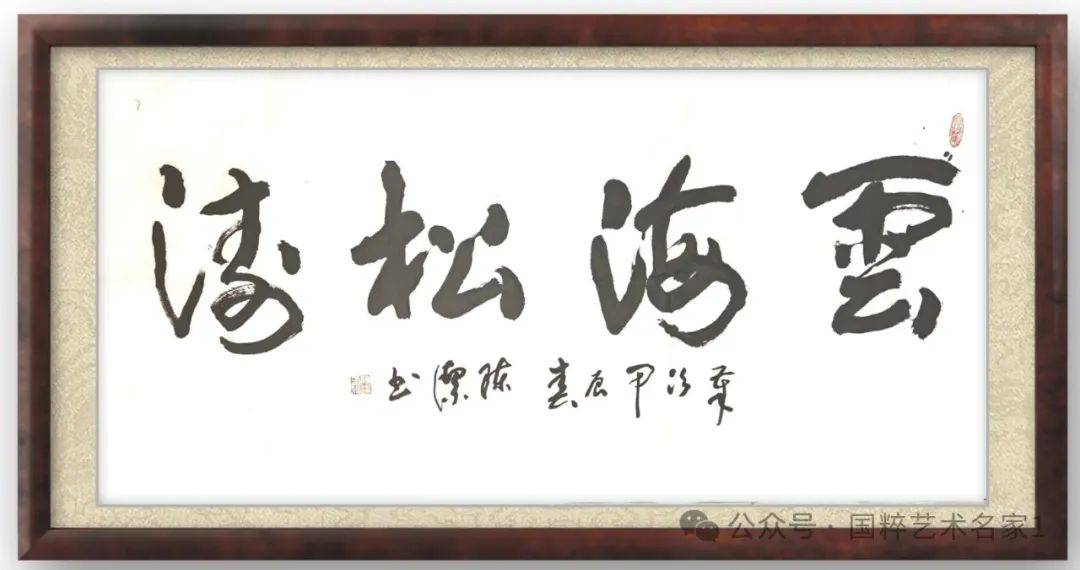 雲海松涛
歲次甲辰春 陈潔书
公众号 · 国粹艺术名家1